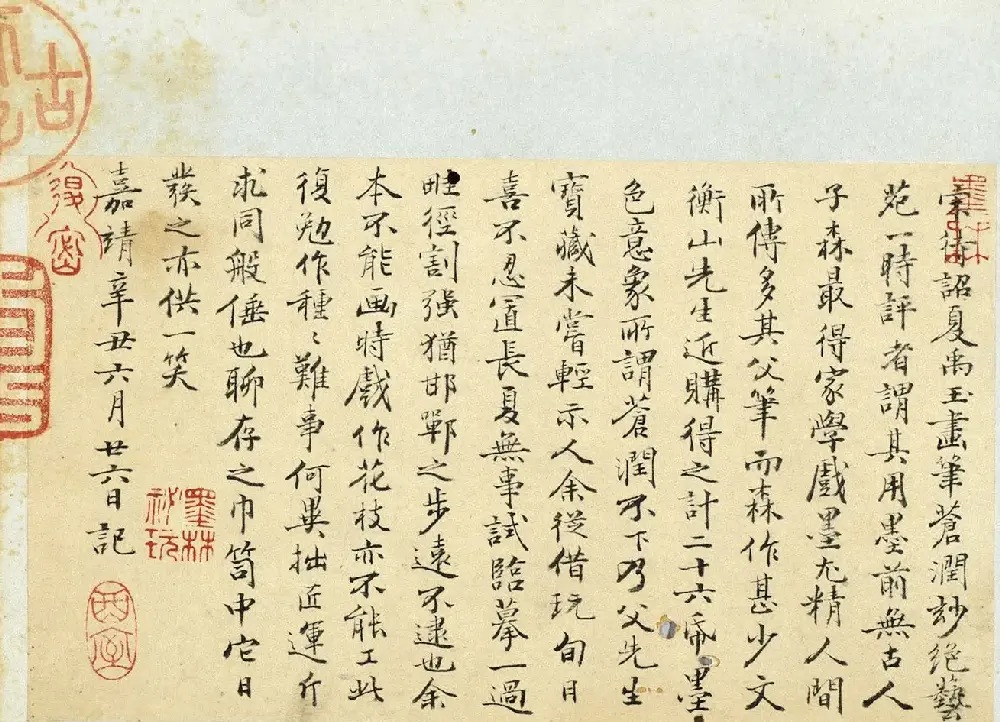 宋待詔夏禹玉畫筆蒼潤玅絕藝
苑一時評者謂其用墨前無古人
子森最得家學戲墨尤精人間
所傳多其父筆而森作甚少文
衡山先生近購得之計二十六帋墨
色意象所謂蒼潤不下乃父先生
寶藏未嘗輕示人余從借玩旬日
喜不忍置長夏無事試臨摹一過
畦徑割强猶邯鄲之步遠不逮也余
本不能画時戲作花枝亦不能工此
復勉作種〻難事何異拙匠運斤
求同般倕也聊存之巾笥中它日
發之亦供一笑
嘉靖辛丑六月廿六日記
墨林
祕玩
酉室